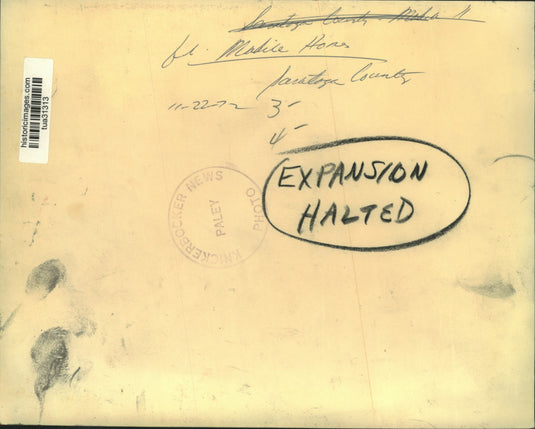 Saratoga County - Mobile H
fl. Mobile Homes
Saratoga County
11-22-72 3-
4-
EXPANSION
HALTED
KNICKERBOCKER NEWS
PALEY
PHOTO
historicimages.com
tua31313